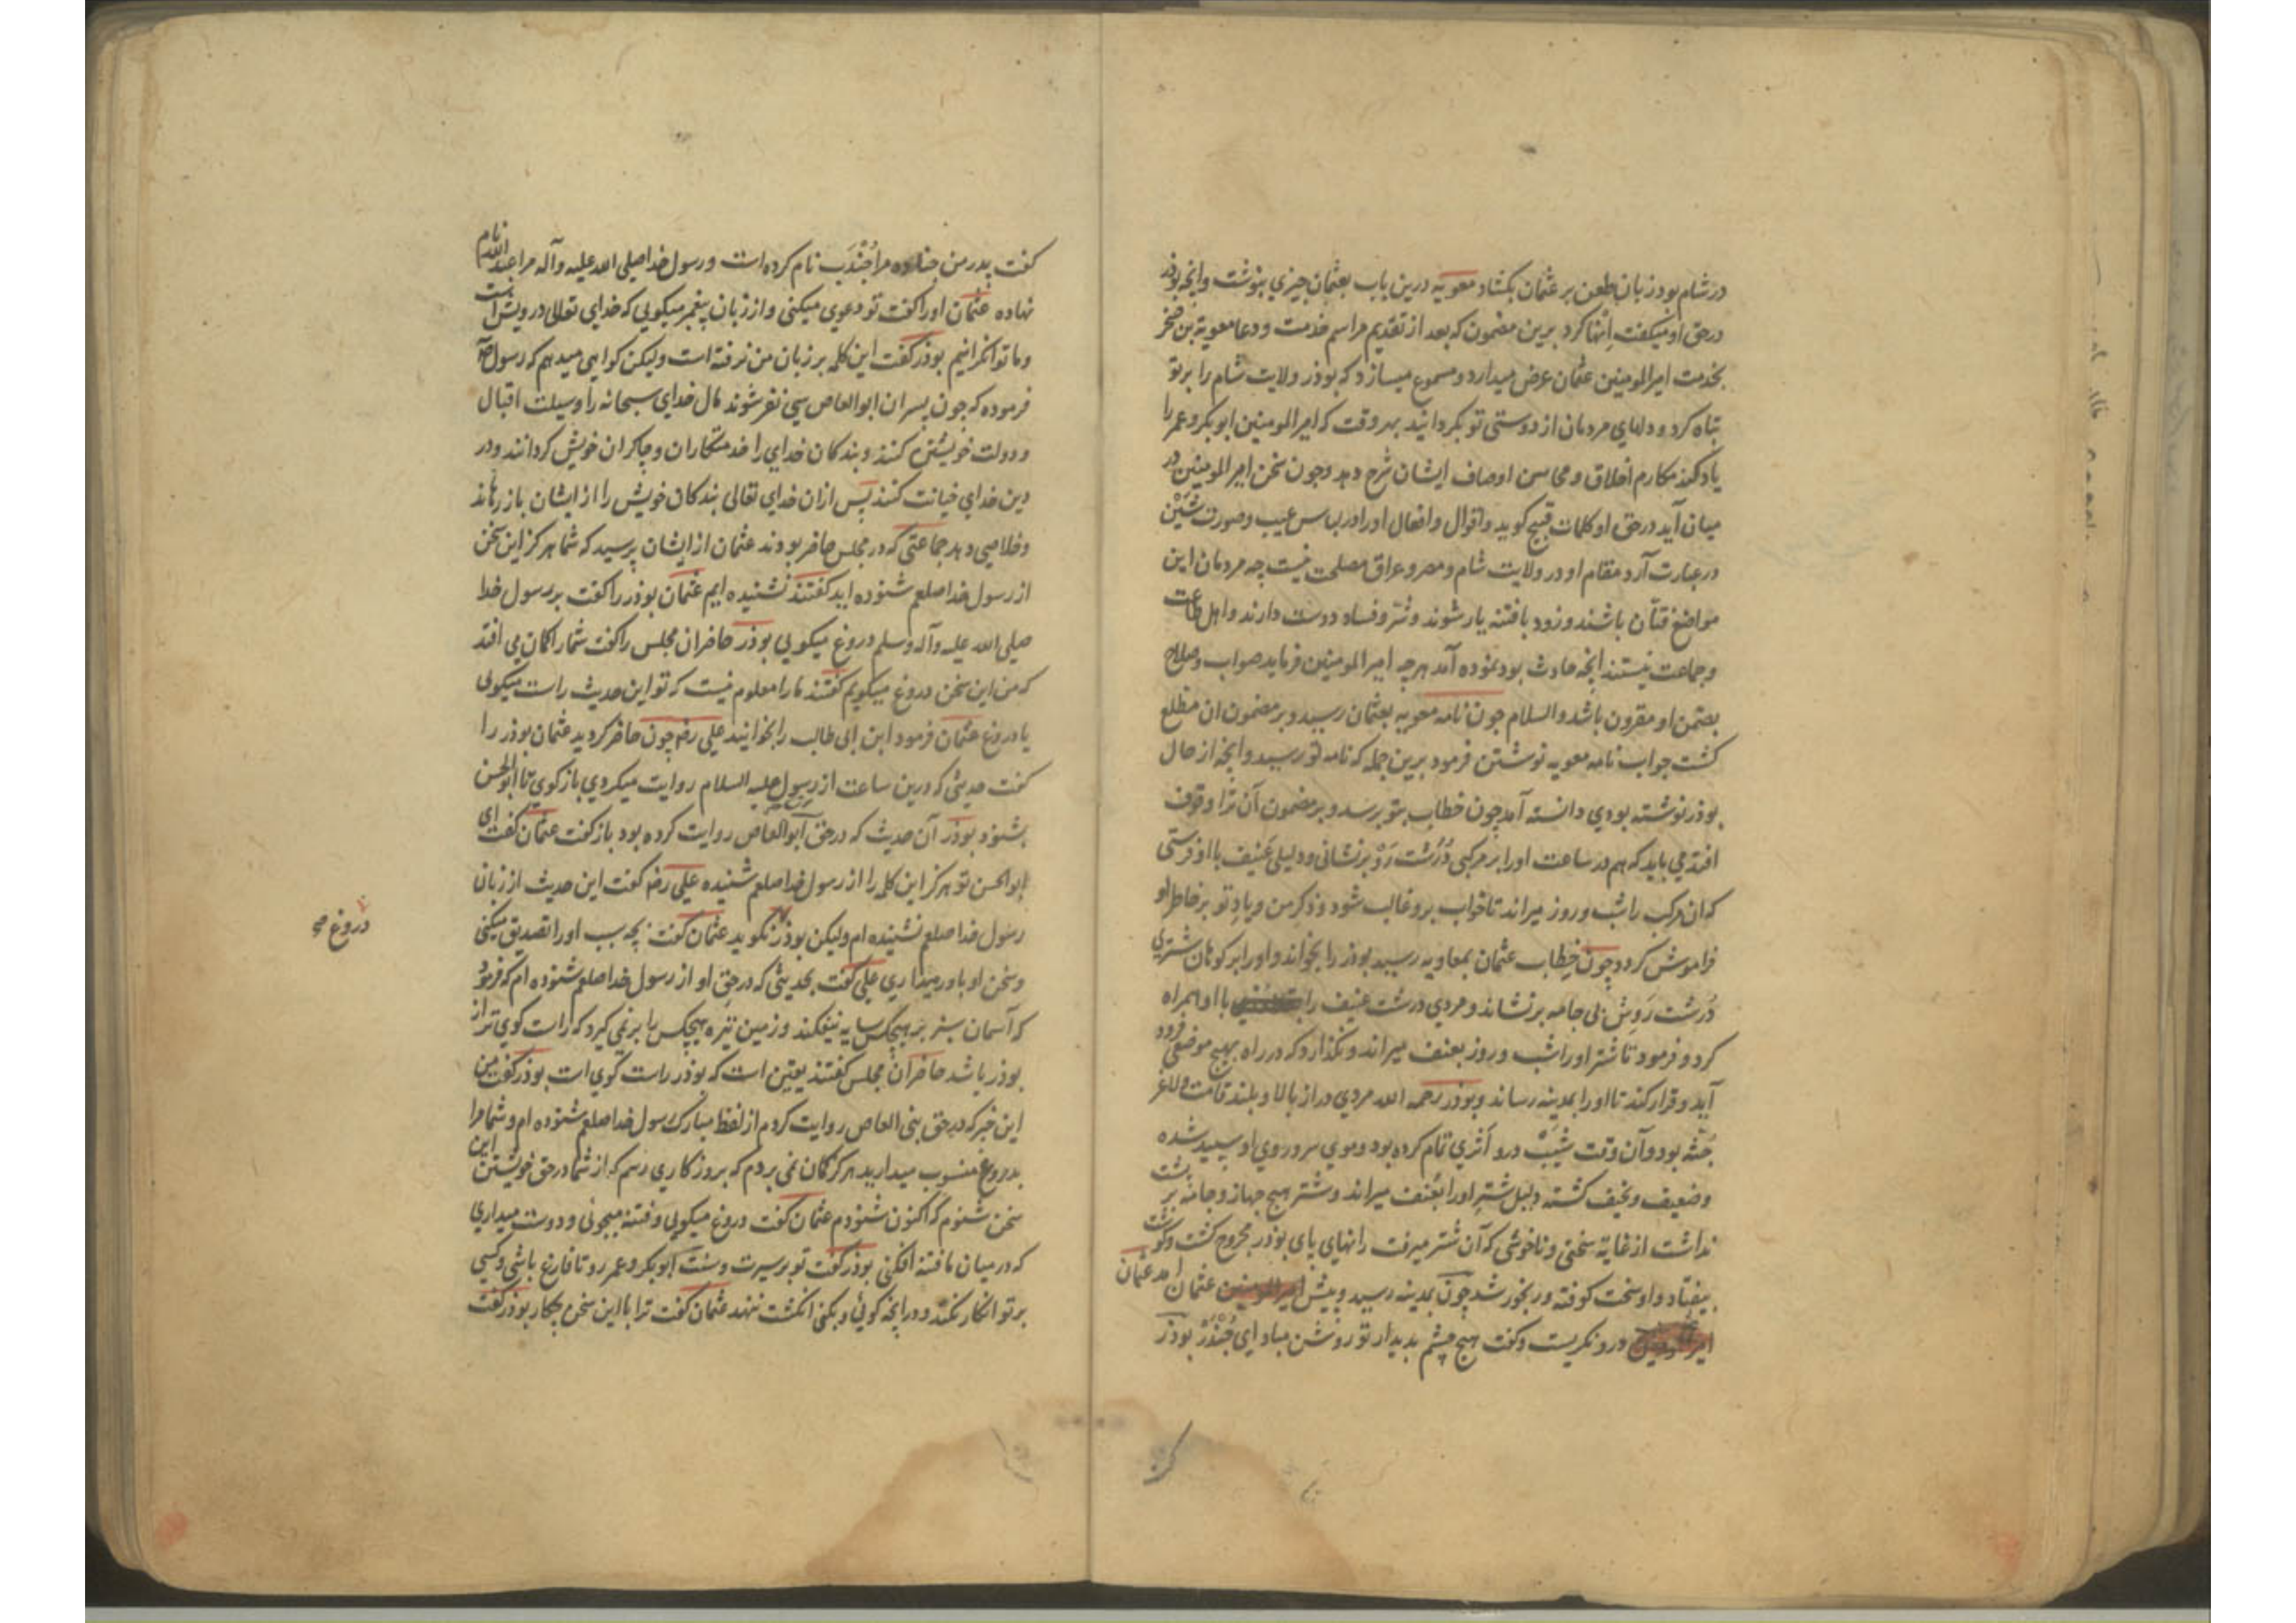 در شام بوذر زبان طعن بر عثمان بکشاد معویه درین باب بعثمان چیزي بنوشت وانچه بوذر
در حق او میکفت اِنْها کرد برین مضمون که بعد از تقدیم مراسم خدمت و دعا معویة بن صخر
بخدمت امیر المومنین عثمان عرض میدارد و مسموع میسازد که بوذر ولایت شام را بر تو
تباه کرد و دلهاي مردمان از دوستی تو بکردانید بهر وقت که امیر المومنین ابوبکر و عمر را
یاد کند مکارم اخلاق و محاسن اوصاف ایشان شرح دهد و چون سخن امیر المومنین در
میان آید در حق او کلمات قبیح کوید و اقوال و افعال او را در لباس عیب و صورت شَیْن
در عبارت آرد مقام او در ولایت شام و مصر و عراق مصلحت نیست چه مردمان این
مواضع فتّان باشند و زود با فتنه یار شوند و شر و فساد دوست دارند و اهل طاعت
و جماعت نیستند انچه حادث بود نموده آمد هرچه امیر المومنین فرماید صواب و صلاح
بضمن او مقرون باشد والسلام چون نامه معویه بعثمان رسید و بر مضمون ان مطلع
کشت جواب نامه معویه نوشتن فرمود برین جمله که نامه تو رسید و انچه از حال
بوذر نوشته بودي دانسته آمد چون خطاب بتو برسد و بر مضمون آن ترا وقوف
افتد می باید که هم در ساعت او را بر مرکبی دُرُشت رَوْ برنشانی و دلیلی عَنیف با او فرستی
که ان مرکب را شب و روز میراند تا خواب برو غالب شود و ذکر من و یاد تو بر خاطر او
فراموش کردد چون خطاب عثمان بمعاویه رسید بوذر را بخواند و او را بر کوهان شتري
دُرشت رَوِش بی جامه برنشاند و مردي درشت عنیف را با او همراه
کرد و فرمود تا شتر او را شب و روز بعنف میراند و نکذارد که در راه بهیچ موضعی فرود
آید و قرار کند تا او را بمدینه رساند و بوذر رحمه الله مردي دراز بالا و بلند قامت و لاغر
جُثه بود و آن وقت شَیبْ درو اَثري تمام کرده بود و موي سر و روي او سپید شده
و ضعیف و نحیف کشته دلیل شتر او را بعُنف میراند و شتر هیچ جهاز و جامه بر پشت
نداشت از غایة سختی و ناخوشی که آن شتر میرفت رانهاي پاي بوذر مجروح کشت و کوشت
بیفتاد و او سخت کوفته و رنجور شد چون بمدینه رسید و پیش امیر المومنین عثمان امد عثمان
درو نکریست و کفت هیچ چشم بدیدار تو روشن مباد اي جُنْدَبْ بوذر
کفت پدر من جناده مرا جُنْدَب نام کرده است و رسول خدا صلی الله علیه و آله مرا عبد الله نام
نهاده عثمان او را کفت تو دعوي میکنی و از زبان پیغمبر میکویی که خداي تعالی درویش است
و ما توانکرانیم بوذر کفت این کلمه بر زبان من نرفته است ولیکن کواهی میدهم که رسول
فرموده که چون پسران ابوالعاص سی نفر شوند مال خداي سبحانه را وسیلت اقبال
و دولت خویشتن کنند و بندکان خداي را خدمتکاران و چاکران خویش کردانند و در
دین خداي خیانت کنند پس ازان خداي تعالی بندکان خویش را از ایشان باز رهاند
و خلاصی دهد جماعتی که در مجلس حاضر بودند عثمان از ایشان پرسید که شما هرکز این سخن
از رسول خدا صلعم شنوده اید کفتند نشنیده ایم عثمان بوذر را کفت بر رسول خدا
صلی الله علیه و آله وسلم دروغ میکویی بوذر حاضران مجلس را کفت شما را کمان می افتد
که من این سخن دروغ میکویم کفتند ما را معلوم نیست که تو این حدیث راست میکویی
یا دروغ عثمان فرمود ابن ابی طالب را بخوانید علی رضه چون حاضر کردید عثمان بوذر را
کفت حدیثی که درین ساعت از رسول علیه السلام روایت میکردي باز کوي تا ابوالحسن
بشنود بوذر آن حدیث که در حق ابوالعاص روایت کرده بود باز کفت عثمان کفت اي
ابوالحسن تو هرکز این کلمه را از رسول خدا صلعم شنیده علی رضه کفت این حدیث از زبان
رسول خدا صلعم نشنیده ام ولیکن بوذر نکوید عثمان کفت بچه سبب او را تصدیق میکنی
دروغ صح
و سخن او باور میداري علی کفت بحدیثی که در حق او از رسول خدا صلعم شنوده ام که فرمود
که آسمان سبز بر هیچکس سایه نیفکند و زمین تیره هیچکس را بر نمی کیرد که راست کوي تر از
بوذر باشد حاضران مجلس کفتند یقین است که بوذر راست کوي است بوذر کفت من
این خبر که در حق بنی العاص روایت کردم از لفظ مبارک رسول خدا صلعم شنوده ام و شما مرا
بدروغ منسوب میدارید هرکز کمان نمی بردم که بروزکاري رسم که از شما در حق خویشتن این
سخن شنوم که اکنون شنودم عثمان کفت دروغ میکویی و فتنه میجوئی و دوست میداري
که در میان ما فتنه افکنی بوذر کفت تو بر سیرت و سنت ابوبکر و عمر رو تا فارغ باشی و کسی
بر تو انکار نکند و در انچه کوئی و بکنی انکشت ننهد عثمان کفت ترا با این سخن چکار بوذر کفت